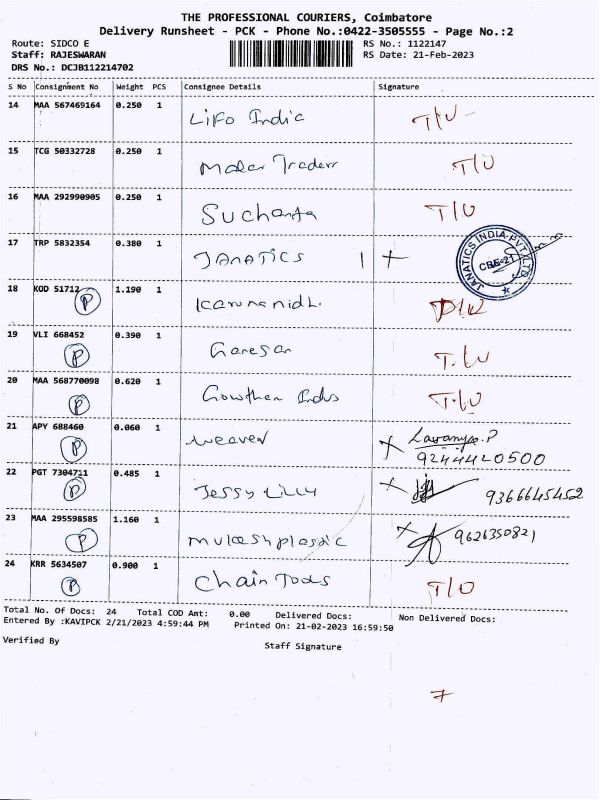 THE PROFESSIONAL COURIERS, Coimbatore
Delivery Runsheet - PCK - Phone No.:0422-3505555 - Page No.:2
Route: SIDCO E RS No.: 1122147
Staff: RAJESWARAN RS Date: 21-Feb-2023
DRS No.: DCJB112214702
S No Consignment No Weight PCS Consignee Details Signature
14 MAA 567469164 0.250 1 Lifo India T/U
15 TCG 50332728 0.250 1 Malar Traders T/U
16 MAA 292990905 0.250 1 Suchanta T/U
17 TRP 5832354 0.380 1 JANATICS 1 + JANATICS INDIA PVT LTD CBE-21
18 KOD 51712 P 1.190 1 Karunanidhi
19 VLI 668452 P 0.390 1 Ganesan T.U
20 MAA 568770098 P 0.620 1 Gowthem Inds T.U
21 APY 688460 P 0.060 1 weaver x Lavanya.P
9244420500
22 PGT 7304711 P 0.485 1 Jessy Lilly x 9366645452
23 MAA 295598585 P 1.160 1 mukesh plasdic x 9626350821
24 KRR 5634507 P 0.900 1 Chain Tools T/O
Total No. Of Docs: 24 Total COD Amt: 0.00 Delivered Docs: Non Delivered Docs:
Entered By :KAVIPCK 2/21/2023 4:59:44 PM Printed On: 21-02-2023 16:59:50
Verified By Staff Signature
7